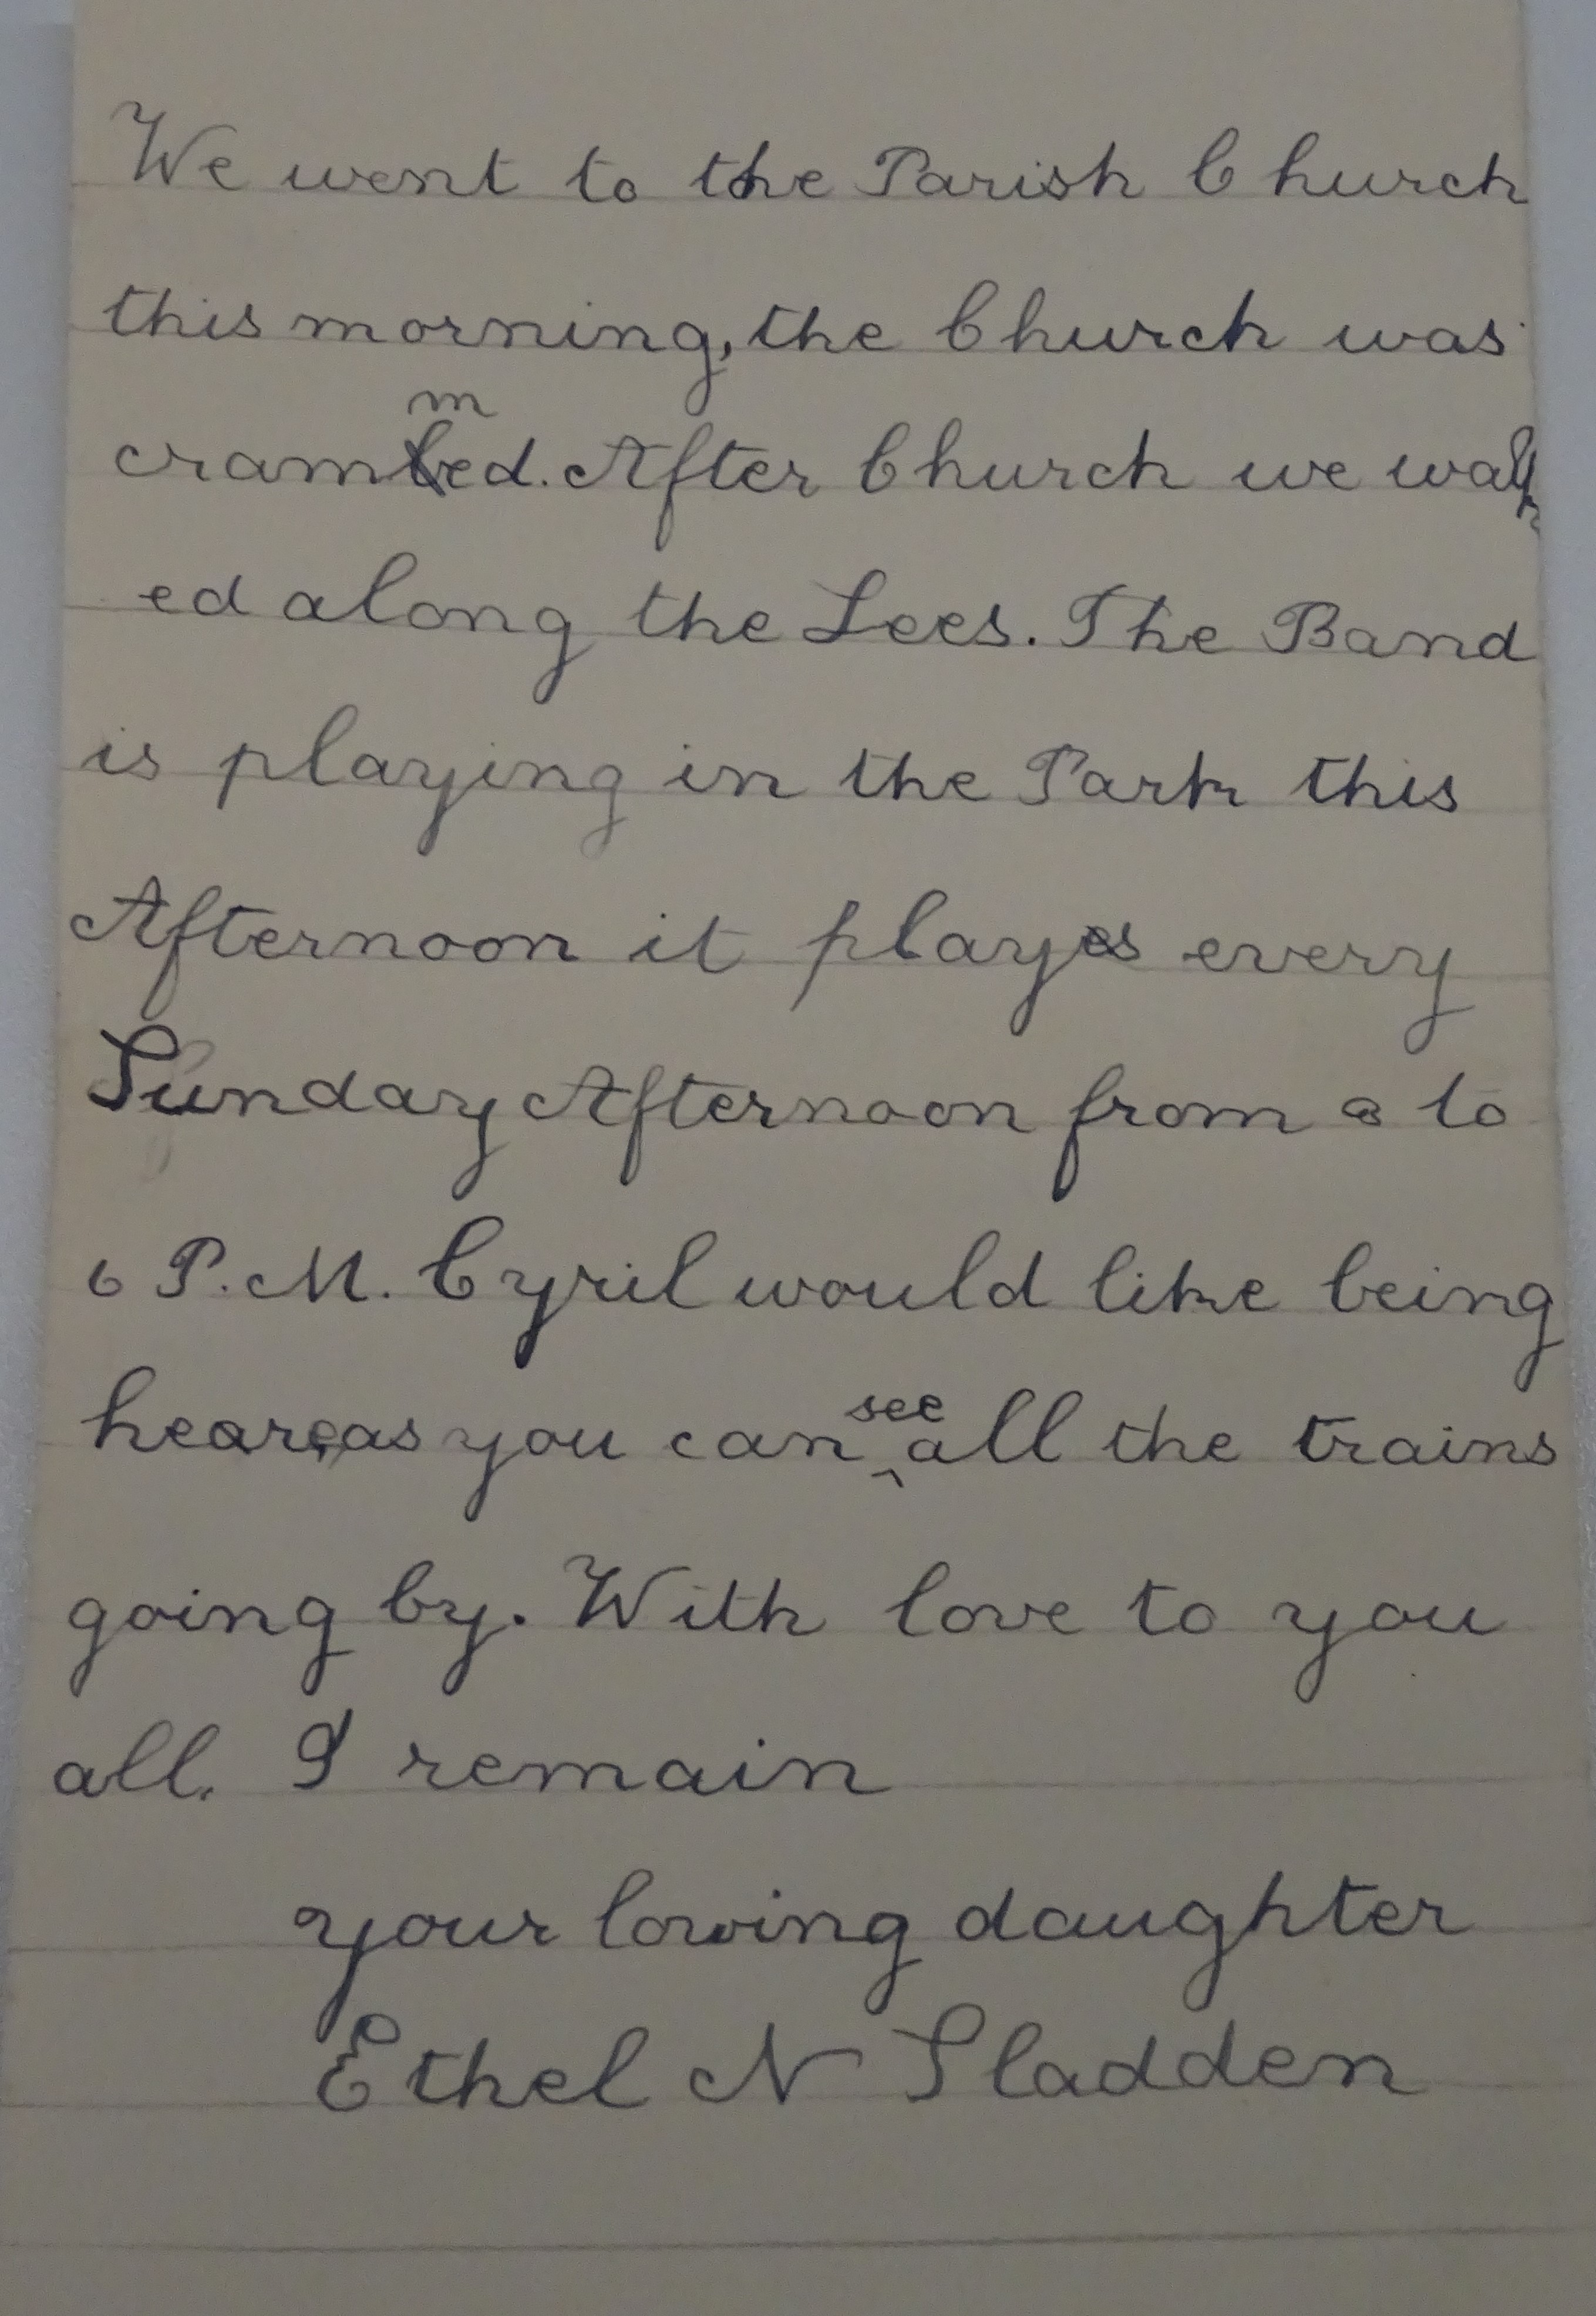 We went to the Parish Church
this morning, the Church was
crammed. After Church we walk
ed along the Lees. The Band
is playing in the Park this
Afternoon it plays every
Sunday Afternoon from to
6 P.M. Cyril would like being
hear, as you can see all the trains
going by. With love to you
all. I remain
your loving daughter
Ethel N Sladden